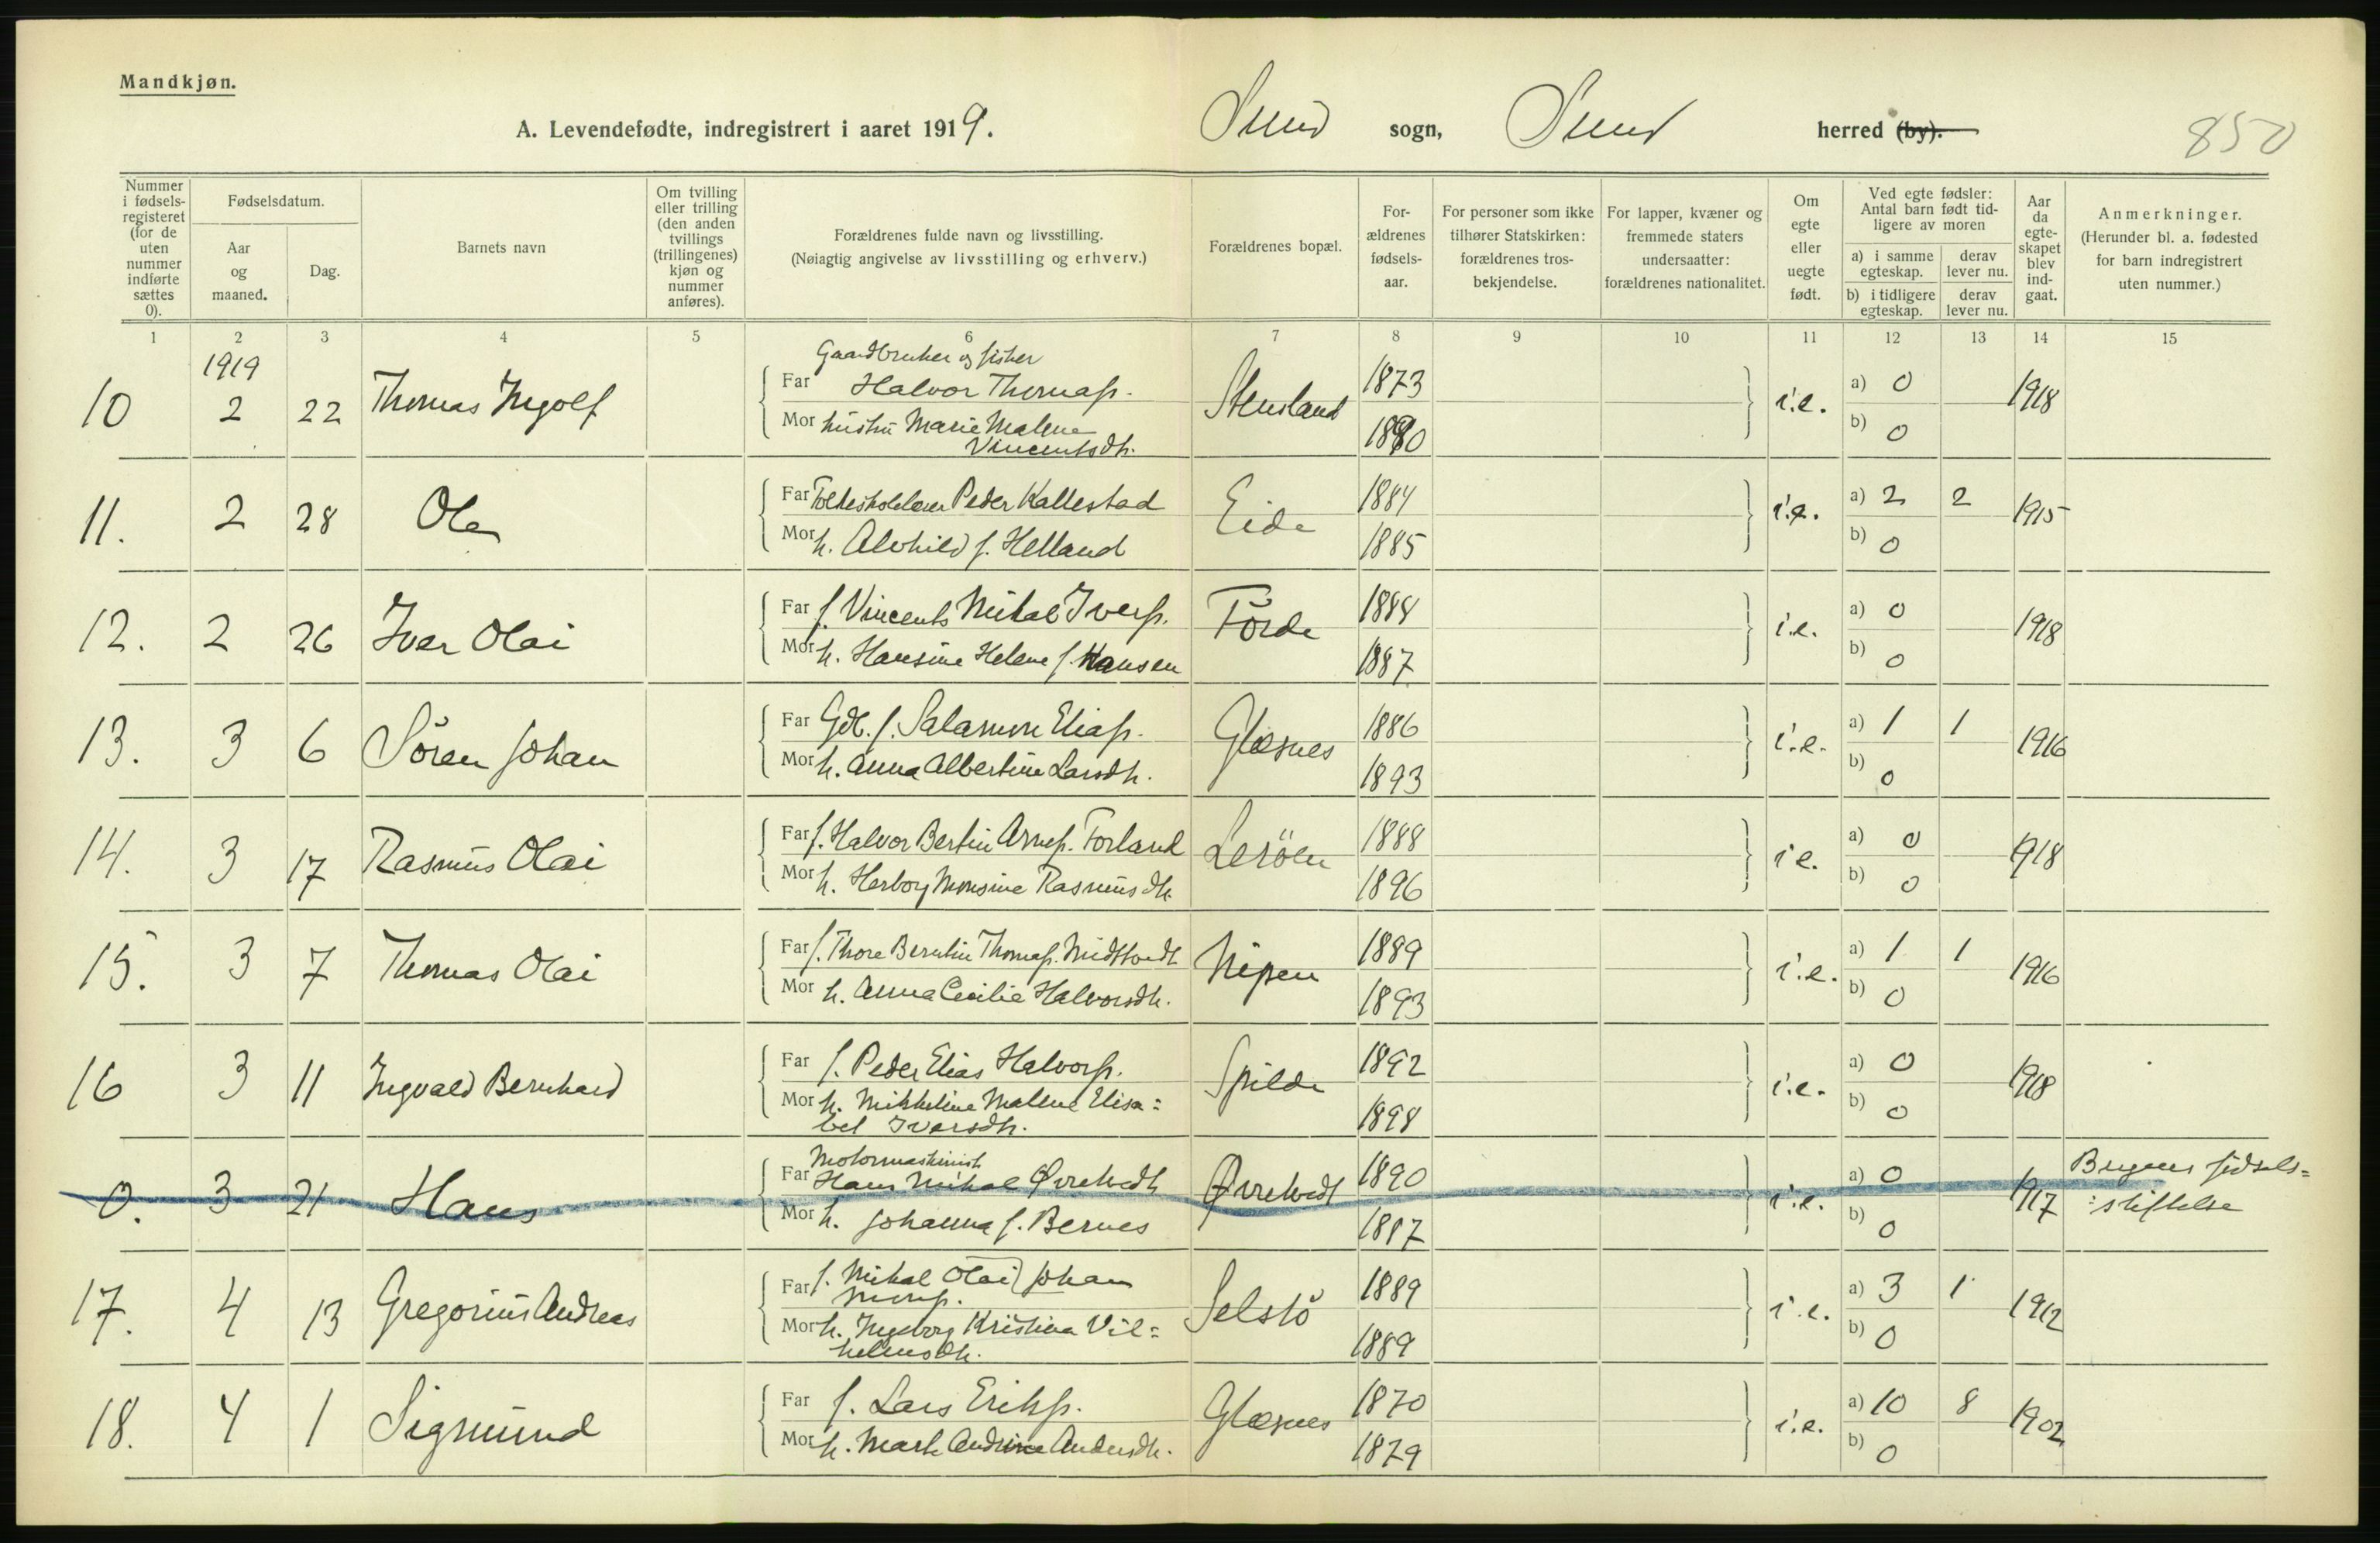 Mandkjøn.
A. Levendefødte, indregistrert i aaret 1919. Sund sogn, Sund herred (by). 850
Nummer i fødselsregisteret (for de uten nummer indførte sættes 0).
Fødselsdatum.
Aar og maaned.
Dag.
Barnets navn
Om tvilling eller trilling (den anden tvillings (trillingenes) kjøn og nummer anføres).
Forældrenes fulde navn og livsstilling.
(Nøiagtig angivelse av livsstilling og erhverv.)
Forældrenes bopæl.
For-ældrenes fødsels-aar.
For personer som ikke tilhører Statskirken: forældrenes tros-bekjendelse.
For lapper, kvæner og fremmede staters undersaatter: forældrenes nationalitet.
Om egte eller uegte født.
Ved egte fødsler: Antal barn født tid-ligere av moren
a) i samme egteskap. derav lever nu.
b) i tidligere egteskap. derav lever nu.
Aar da egte-skapet blev ind-gaat.
Anmerkninger.
(Herunder bl. a. fødested for barn indregistrert uten nummer.)
1 2 3 4 5 6 7 8 9 10 11 12 13 14 15
1919
Gaardbruker og fisker
10 2 22 Thomas Ingolf Far Halvor Thomass. Stensland 1873 i.e. a) 0 1918
Mor hustru Marie Malene 1880 b) 0
Vincentsdtr.
11. 2 28 Ola Far Folkeskolelærer Peder Kallestad Eide 1884 i.e. a) 2 2 1915
Mor h. Alvhild f. Helland 1885 b) 0
12. 2 26 Iver Olai Far f. Vincents Mikal Iverss. Förde 1888 i.e. a) 0 1918
Mor h. Hansine Helene f. Hansen 1887 b) 0
13. 3 6 Sören Johan Far Gdb. f. Salamon Eliass. Glesnes 1886 i.e. a) 1 1 1916
Mor h. Anna Albertine Larsdtr. 1893 b) 0
14. 3 17 Rasmus Olai Far f. Halvor Bertin Arness. Forland Leröen 1888 i.e. a) 0 1918
Mor h. Herborg Monsine Rasmusdtr. 1896 b) 0
15. 3 7 Thomas Olai Far f. Thore Berntin Thomass. Midttvedt Nipen 1889 i.e. a) 1 1 1916
Mor h. Anna Cecilie Halvorsdtr. 1893 b) 0
16 3 11 Ingvald Bernhard Far f. Peder Elias Halvorss. Spilde 1892 i.e. a) 0 1918
Mor h. Mikkeline Malene Elisa=
bet Iversdtr. 1898 b) 0
Motormaskinist
0. 3 21 Hans Far Hans Mikal Øvretvedt Øvretvedt 1890 i.e. a) 0 1917 Bergens fødsels=
Mor h. Johanna f. Bernes 1887 b) 0 :stiftelse
17. 4 13 Gregorius Andreas Far f. Mikal Olai Johan Selstö 1889 i.e. a) 3 1 1912
Monss.
Mor h. Ingeborg Kristina Vil=
helmsdtr. 1889 b) 0
18. 4 1 Sigmund Far f. Lars Erikss. Glesnes 1870 i.e. a) 10 8 1902
Mor h. Andrine Andersdtr. 1879 b) 0